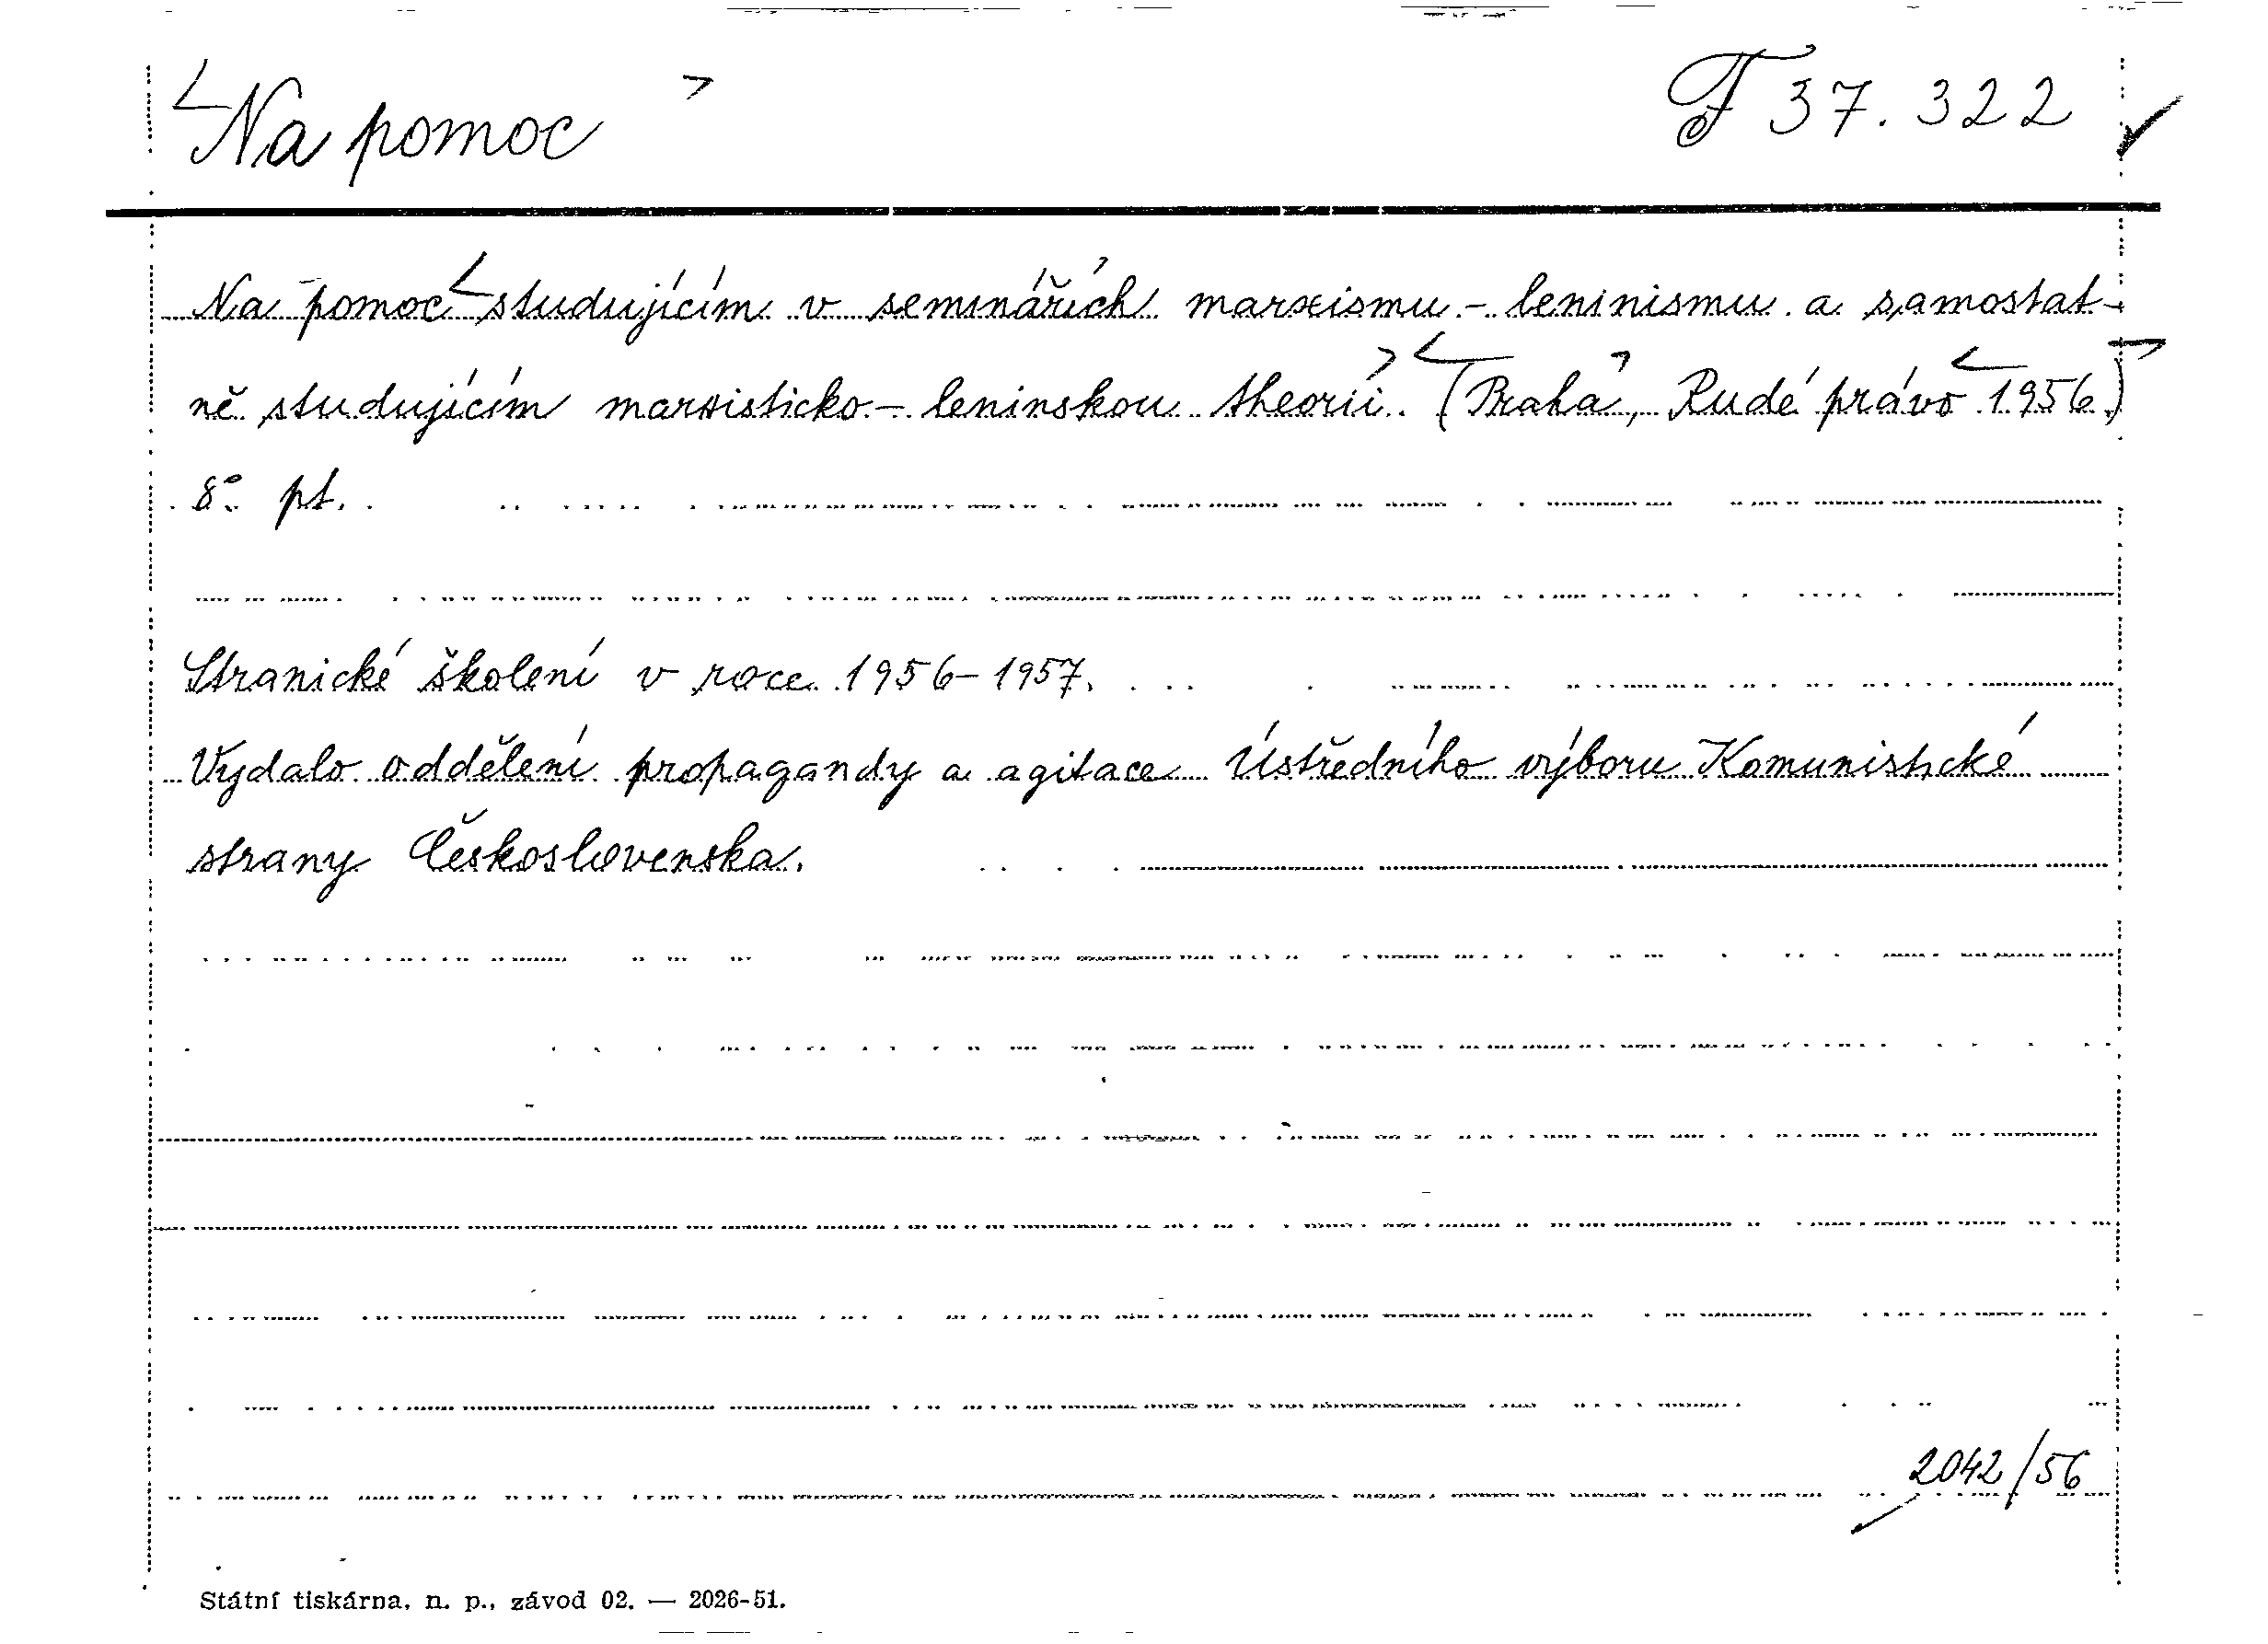 Na pomoc
F 37.322
Na pomoc studujícím v seminářích marxismu - leninismu a samostat-
ně studujícím marxisticko - leninskou theorii. (Praha, Rudé právo 1956.)
8°. pt.
Stranické školení v roce 1956-1957.
Vydalo oddělení propagandy a agitace Ústředního výboru Komunistické
strany Československa.
2042/56
Státní tiskárna, n. p., závod 02. — 2026-51.